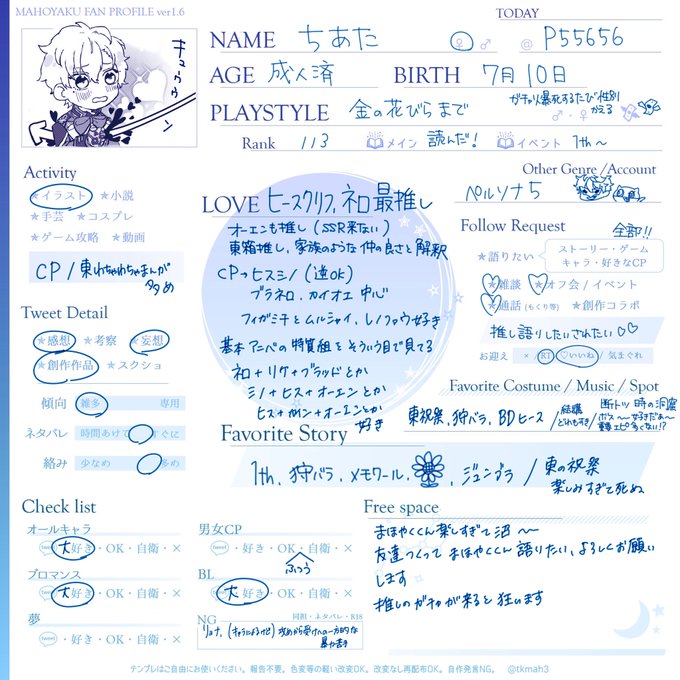 MAHOYAKU FAN PROFILE ver1.6
TODAY
NAME ちあた ♀ ♂ @ P55656
AGE 成人済 BIRTH 7月10日
PLAYSTYLE 金の花びらまで
ガチャり爆死するたび性別かえる
♂・♀
Rank 113 メイン 読んだ! イベント 1th~
キュゥゥン
Activity
★イラスト ★小説
★手芸 ★コスプレ
★ゲーム攻略 ★動画
CP/東わちゃわちゃまんが
多め
Tweet Detail
★感想 ★考察 ★妄想
★創作作品 ★スクショ
傾向 雑多 専用
ネタバレ 時間あけて すぐに
絡み 少なめ 多め
LOVE ヒースクリフ、ネロ最推し
オーエンも推し(SSR来ない)
東箱推し、家族のような仲の良さと解釈
CP→ヒスシノ(逆OK)
ブラネロ、カイオエ中心
フィガミチとムルシャイ、レノファウ好き
基本アニバの特質組をそういう目で見てる
ネロ+リケ+ブラッドとか
シノ+ヒス+オーエンとか
ヒス+カイン+オーエンとか
好き
Other Genre /Account
ペルソナ5
Follow Request 全部!!
★語りたい ストーリー・ゲーム
キャラ・好きなCP
★雑談 ★オフ会 / イベント
★通話(もくり等) ★創作コラボ
推し語りしたいされたい♡♡
お迎え ×/RT/♡いいね/気まぐれ
Favorite Costume / Music / Spot
東祝祭、狩バラ、BDヒース/結構どれもすき/断トツ 時の洞窟
ボス~好きだぁ~
重要エピ多くない!?
Favorite Story
1th、狩バラ、メモワール、、ジュンブラ/東の祝祭
楽しみすぎて死ぬ
Check list
オールキャラ
tweet・大好き・OK・自衛・×
ブロマンス
tweet・大好き・OK・自衛・×
夢
tweet・好き・OK・自衛・×
男女CP
tweet・好き・OK・自衛・×
ふつう
BL
tweet・大好き・OK・自衛・×
NG 同担・ネタバレ・R18
リョナ、(キャラによるけど)攻めから受けへの一方的な
暴力苦手
Free space
まほやくくん楽しすぎて沼~
友達つくって まほやくくん 語りたい、よろしくお願い
します
推しのガチャが来ると狂います
テンプレはご自由にお使いください。報告不要。色変等の軽い改変OK。改変なし再配布OK。自作発言NG。 @tkmah3